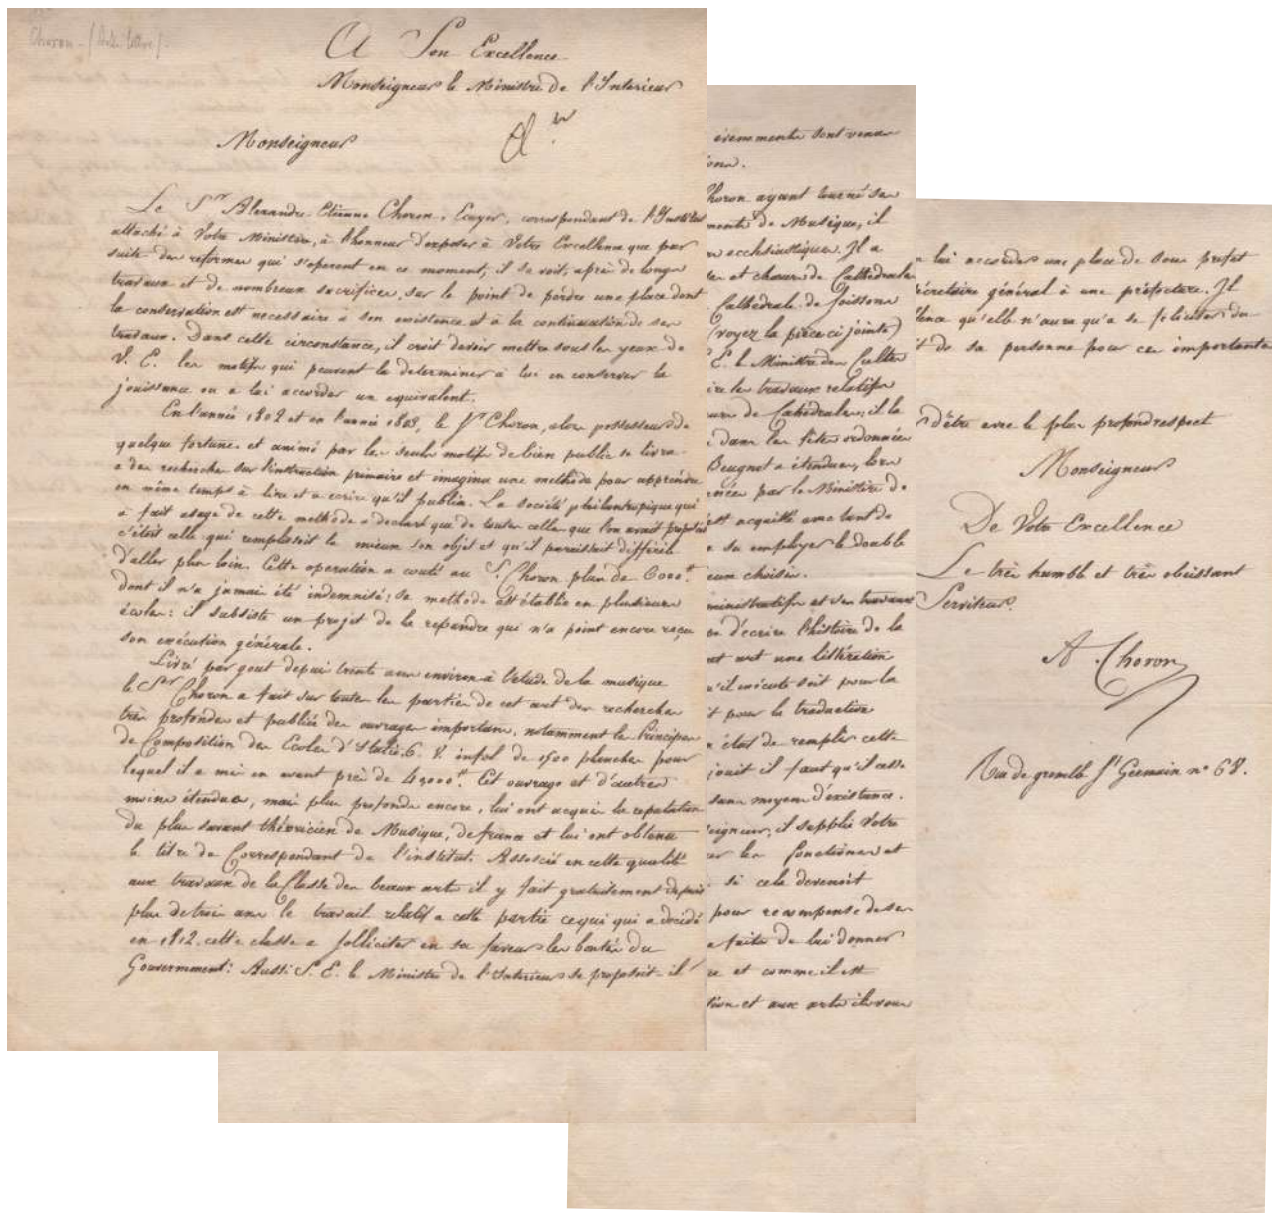 Choron - (Belle lettre) -
A Son Excellence
Monseigneur le Ministre de l'Interieur
Monseigneur
Le Sr Alexandre Etienne Choron, Ecuyer, correspondant de l'Institut
attaché à Votre Ministère, à l'honneur d'exposer à Votre Excellence que par
suite des reformes qui s'operent en ce moment, il se voit, après de longs
travaux et de nombreux sacrifices, sur le point de perdre une place dont
la conservation est necessaire à son existence et à la continuation de ses
travaux. Dans cette circonstance, il croit devoir mettre sous les yeux de
V. E. les motifs qui peuvent la determiner à lui en conserver la
jouissance ou a lui accorder un equivalent.
En l'année 1802 et en l'année 1803, le Sr Choron, alors possesseur de
quelque fortune et animé par les seuls motifs de bien public se livra
a des recherches sur l'instruction primaire et imagina une methode pour apprendre
en même temps à lire et a ecrire qu'il publia. La société philantropique qui
a fait usage de cette methode a declaré que de toutes celles que l'on avait proposées
c'était celle qui remplissoit le mieux son objet et qu'il paraissait difficile
d'aller plus loin. Cette operation a couté au Sr. Choron plus de 6000tt
dont il n'a jamais été indemnisé: sa methode est établie en plusieurs
écoles: il subsiste un projet de la repandre qui n'a point encore reçu
son exécution générale.
Livré par gout depuis trente ans environ à l'etude de la musique
le Sr Choron a fait sur toutes les parties de cet art des recherches
très profondes et publié des ouvrages importans, notamment les Principes
de Composition des Ecoles d'Italie. 6. V. infol de 1500 planches pour
lequel il a mis en avant près de 42000tt. Cet ouvrage et d'autres
moins étendus, mais plus profonds encore, lui ont acquis la reputation
du plus savant théoricien de Musique, de france et lui ont obtenu
le titre de Correspondant de l'institut. Associé en cette qualité
aux travaux de la Classe des beaux arts il y fait gratuitement depuis
plus de trois ans le travail relatif a cette partie ce qui qui a decidé
en 1812 cette classe a solliciter en sa faveur les bontés du
Gouvernment: Aussi S. E. le Ministre de l'Interieur se proposoit-il
évenements sont venus
Choron ayant tourné ses
de Musique, il
ecclésiastiques. Il a
et choeurs de Cathédrales
Cathédrale de Soissons
(voyez la pièce ci jointe)
E. le Ministre des Cultes
les travaux relatifs
de Cathédrales; il la
dans les fêtes ordonnées
Beugnot a étendues, lors
par le Ministère de
est acquitté avec tant de
sa employer le double
choisir.
administratifs et ses travaux
d'écrire l'histoire de la
art une
qu'il exécute soit pour la
pour la traduction
état de remplir cette
jouit il faut qu'il cesse
sans moyens d'existance.
il supplie Votre
les fonctions et
si cela devenoit
pour recompense de ses
faite de lui donner
et comme il est
et aux arts il vous
lui accorder une place de sous prefet
secrétaire général à une préfecture. Il
qu'elle n'aura qu'a se feliciter du
de sa personne pour ces importants
d'être avec le plus profond respect
Monseigneur
De Votre Excellence
Le très humble et très obeissant
Serviteur.
A Choron
Rue de grenelle St Germain n° 68.